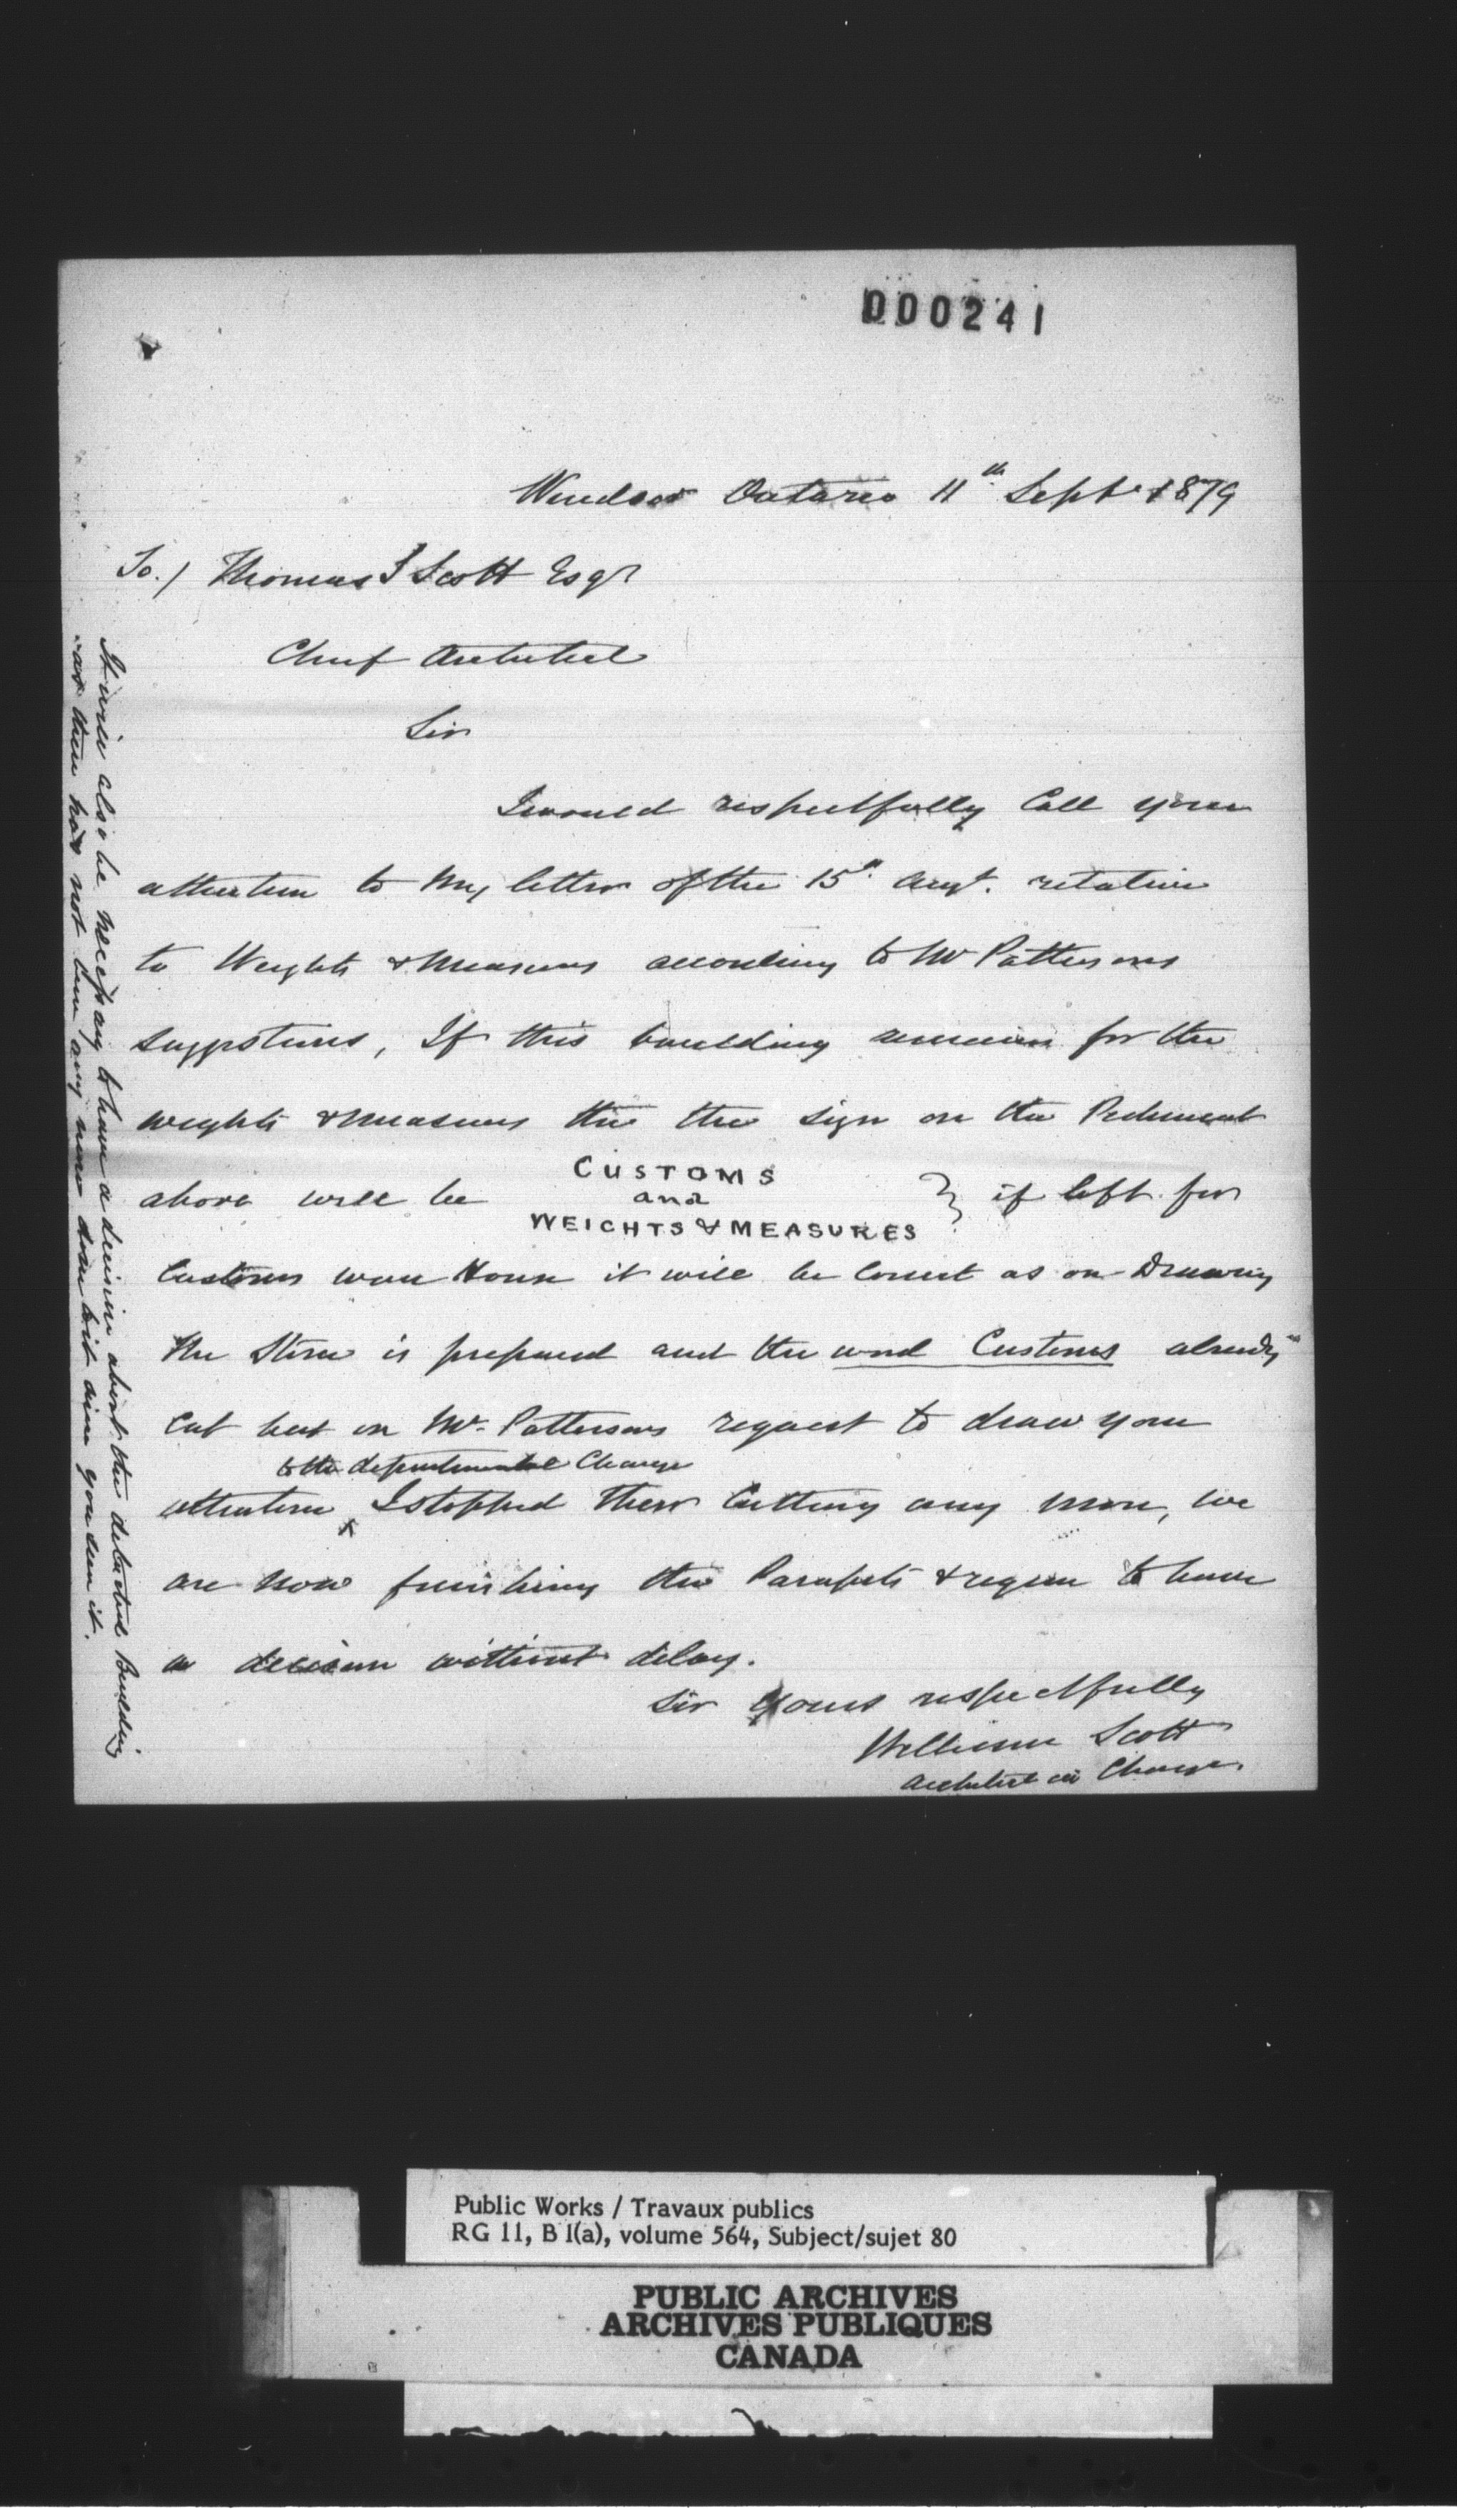 000241
Windsor Ontario 11th Sept 1879
To./ Thomas S Scott Esqr
Chief Architect
Sir
I would respectfully Call your
attention to my letter of the 15th Augt. relative
to Weights & Measures according to Mr Pattersons
suggestions, If this building remains for the
weights & measures the the sign on the Pediment
above will be CUSTOMS and WEIGHTS & MEASURES } if left for
Customs ware House it will be Correct as on Drawing
The Stone is prepared and the word Customs already
Cut but on Mr. Pattersons request to draw your
to the departmental Change
attention I stopped them Cutting any more, we
are now finishing the Parapets & require to have
a decision without delay.
Sir Yours respectfully
William Scott
Architect in Charge.
It will also be necessary to have a decision about the detached Building
as there has not been any more done to it since you seen it.
Public Works / Travaux publics
RG 11, B 1(a), volume 564, Subject/sujet 80
PUBLIC ARCHIVES
ARCHIVES PUBLIQUES
CANADA